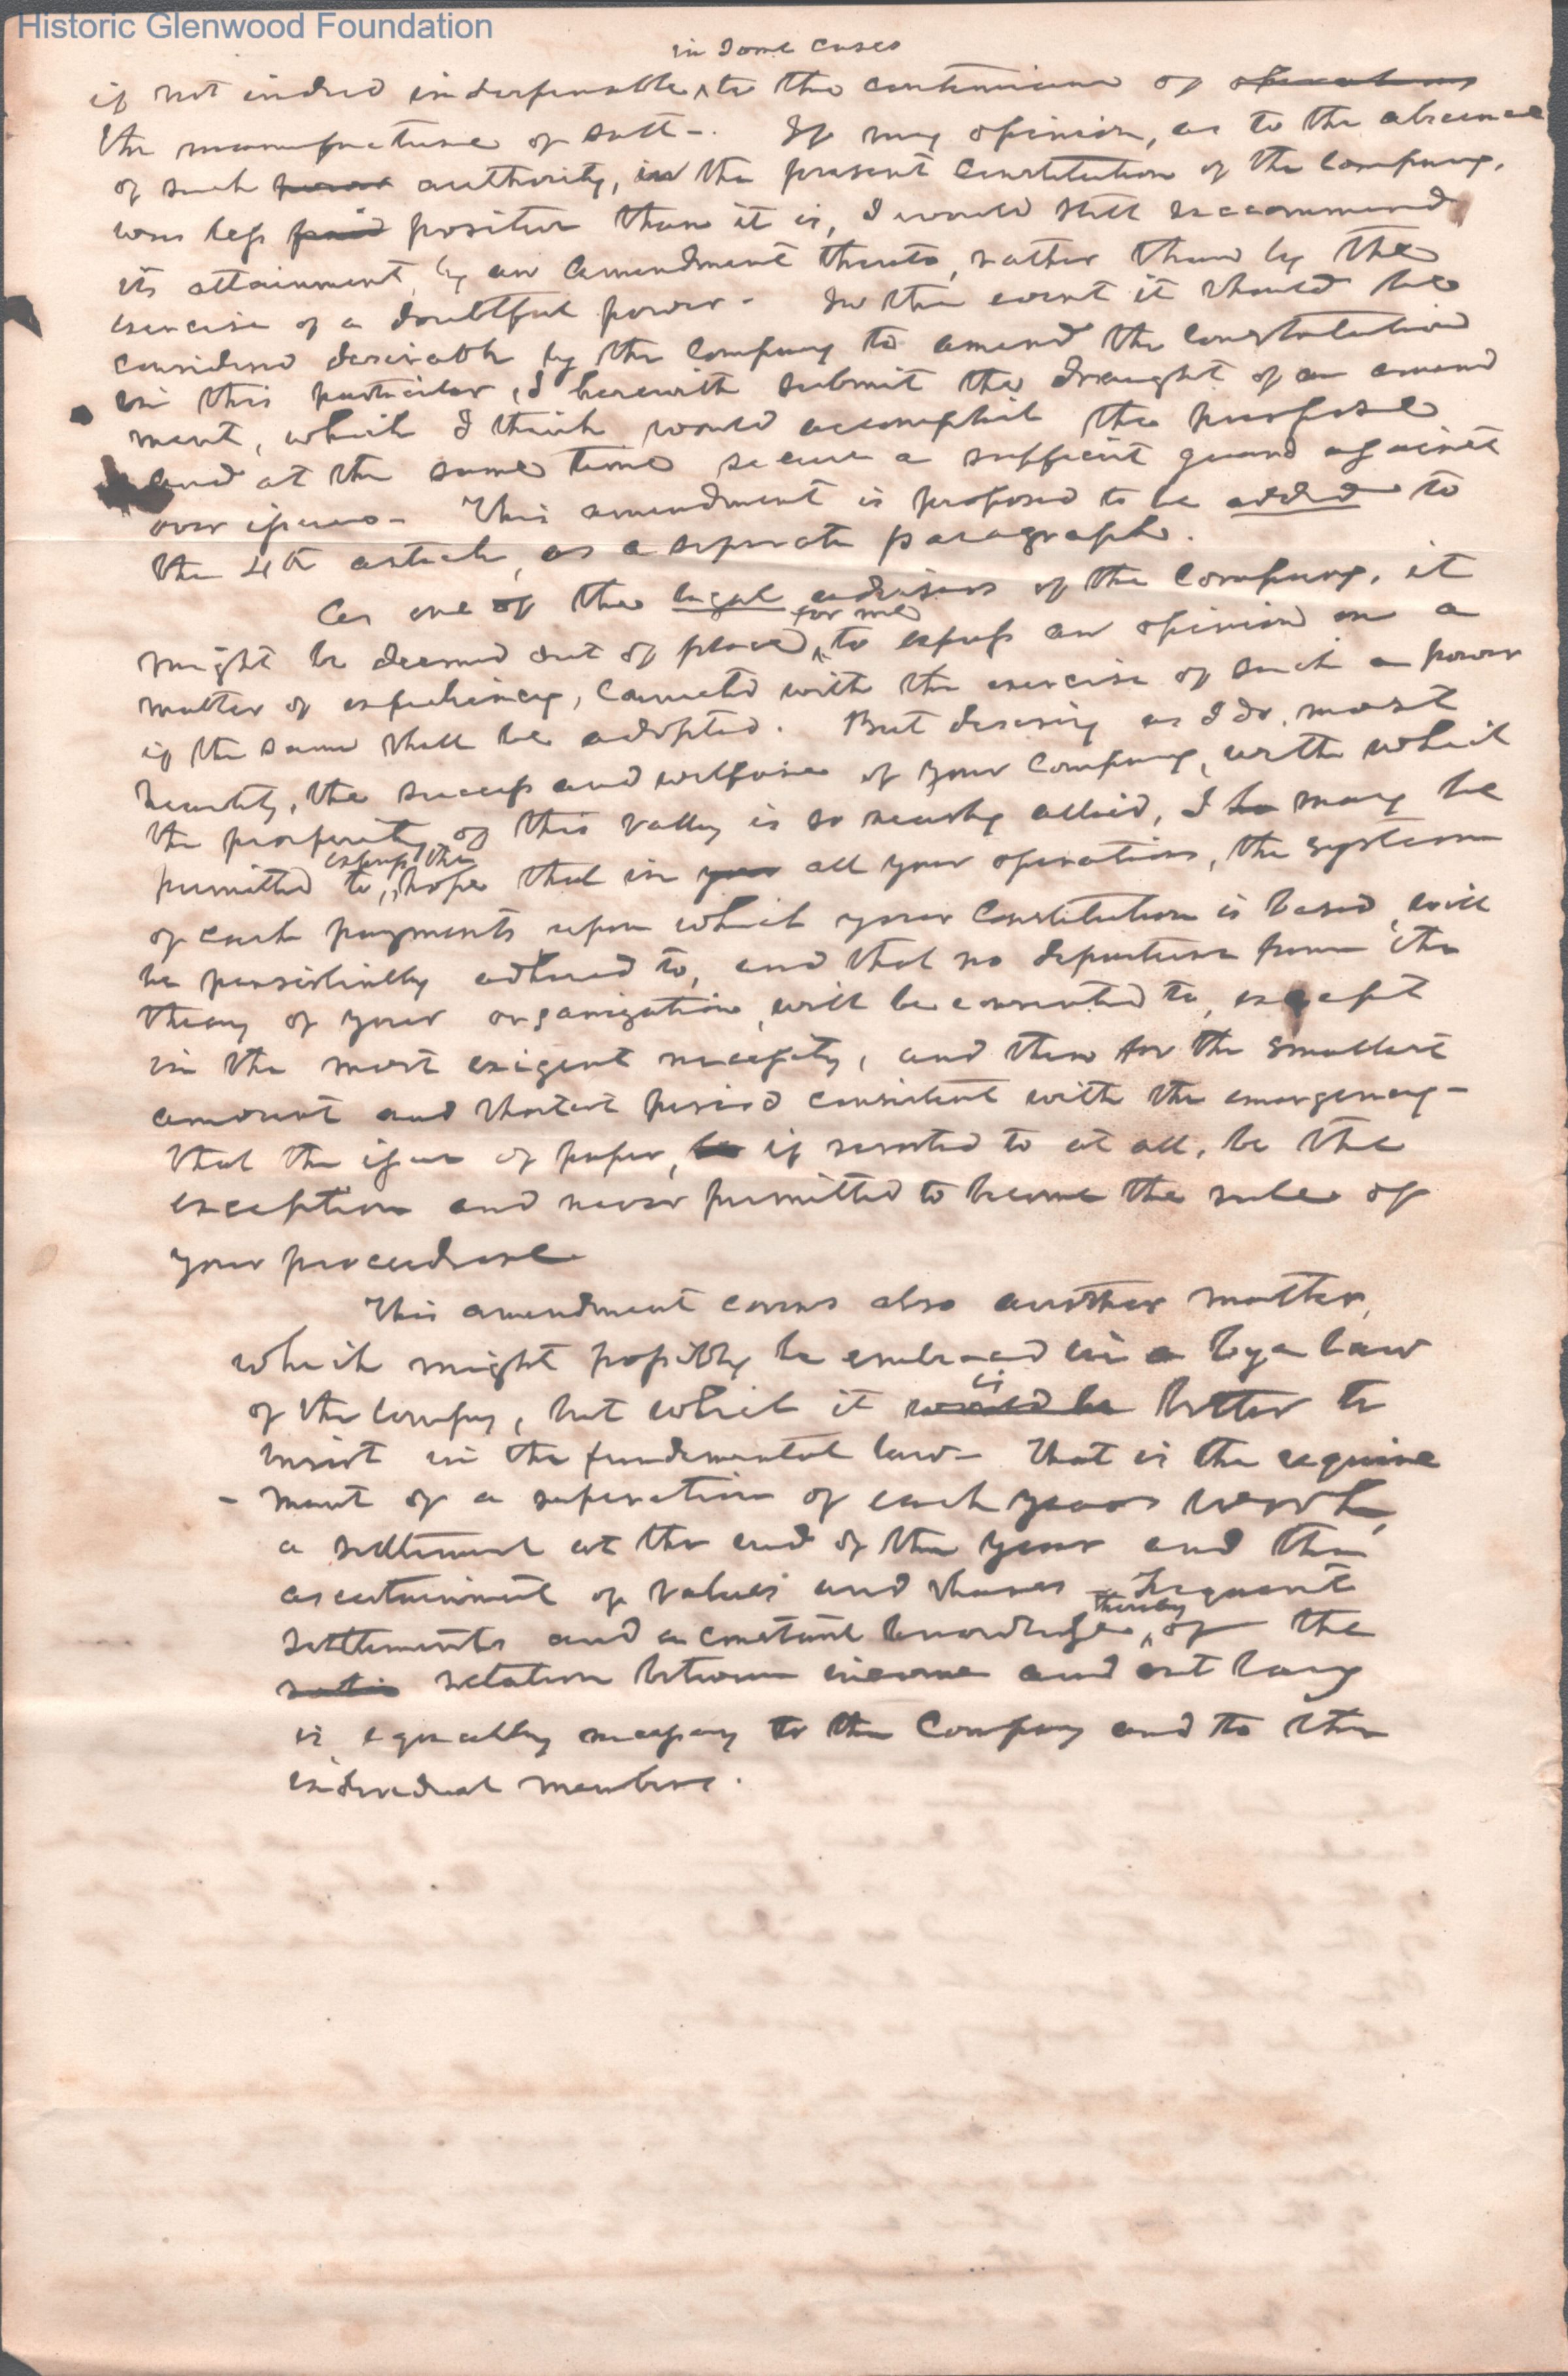 Historic Glenwood Foundation
in some cases
if not indeed indespensable, to the continuance of operations
the manufacture of salt -. If my opinion, as to the absence
of such power authority, in the present constitution of the Company,
was less positive than it is, I would still reccommend
its attainment, by an amendment thereto, rather than by the
exercise of a doubtful power - In the event it should be
considered desirable by the Company to amend the Constitution
in this particular, I herewith submit the draught of an amend
ment, which I think would accomplish the purpose
and at the same time secure a sufficient guard against
over issues - This amendment is proposed to be added to
the 4th article, as a seperate paragraph.
As one of the legal advisors of the Company, it
for me
might be deemed out of place, to express an opinion on a
matter of expediency, connected with the exercise of such a power
if the same shall be adopted. But desiring as I do, most
heartily, the success and wellfare of your Company, with which
the prosperity of this valley is so nearly allied, I may be
express the
permitted to, hope that in your all your operations, the system
of cash payments upon which your Constitution is based, will
be persistently adhered to, and that no departure from the
theory of your organization, will be consented to, except
in the most exigent necessity, and then for the smallest
amount and shortest period consistent with the emergency -
that the issue of paper, be if resorted to at all, be the
exception and never permitted to become the rule of
your procedure
This amendment covers also another matter,
which might possibly be embraced in a bye law
is
of the Company, but which it would be better to
insert in the fundemental law - That is the require
- ment of a seperation of each years work,
a settlement at the end of the year and the
ascertainment of values and shares - Frequent
thereby
settlements and a constant knowledge, of the
ratio relation between income and out lay
is equally necessary to the Company and to the
individual members.